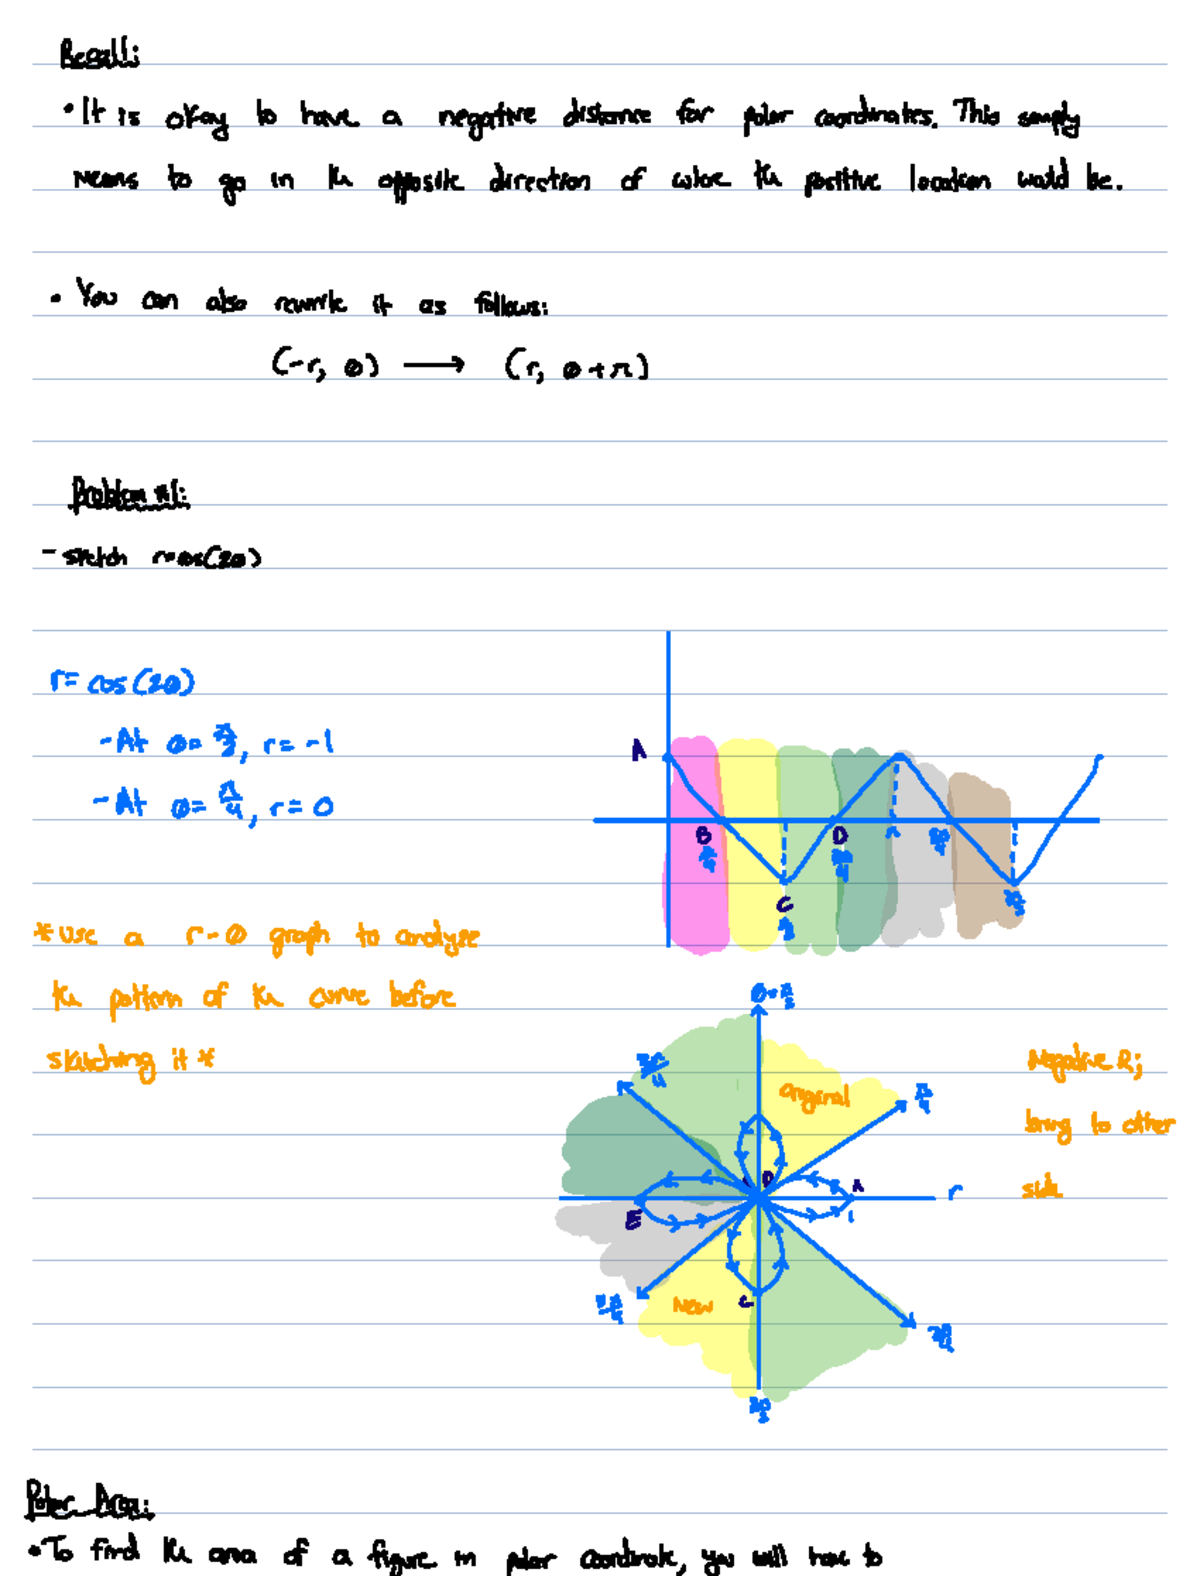 Recall:
• It is okay to have a negative distance for polar coordinates. This simply
means to go in the opposite direction of where the positive location would be.
• You can also rewrite it as follows:
(-r, θ) → (r, θ+π)
Problem #1:
- sketch r=cos(2θ)
r= cos(2θ)
- At θ= π/2, r= -1
- At θ= π/4, r= 0
A
B
π/4
C
π/2
D
3π/4
π
5π/4
3π/2
*use a r-θ graph to analyze
the pattern of the curve before
sketching it *
θ=π/2
3π/4
original
π/4
Negative R;
bring to other
side
A
r
1
E
C
New
5π/4
7π/4
3π/2
Polar Area:
• To find the area of a figure in polar coordinate, you will have to